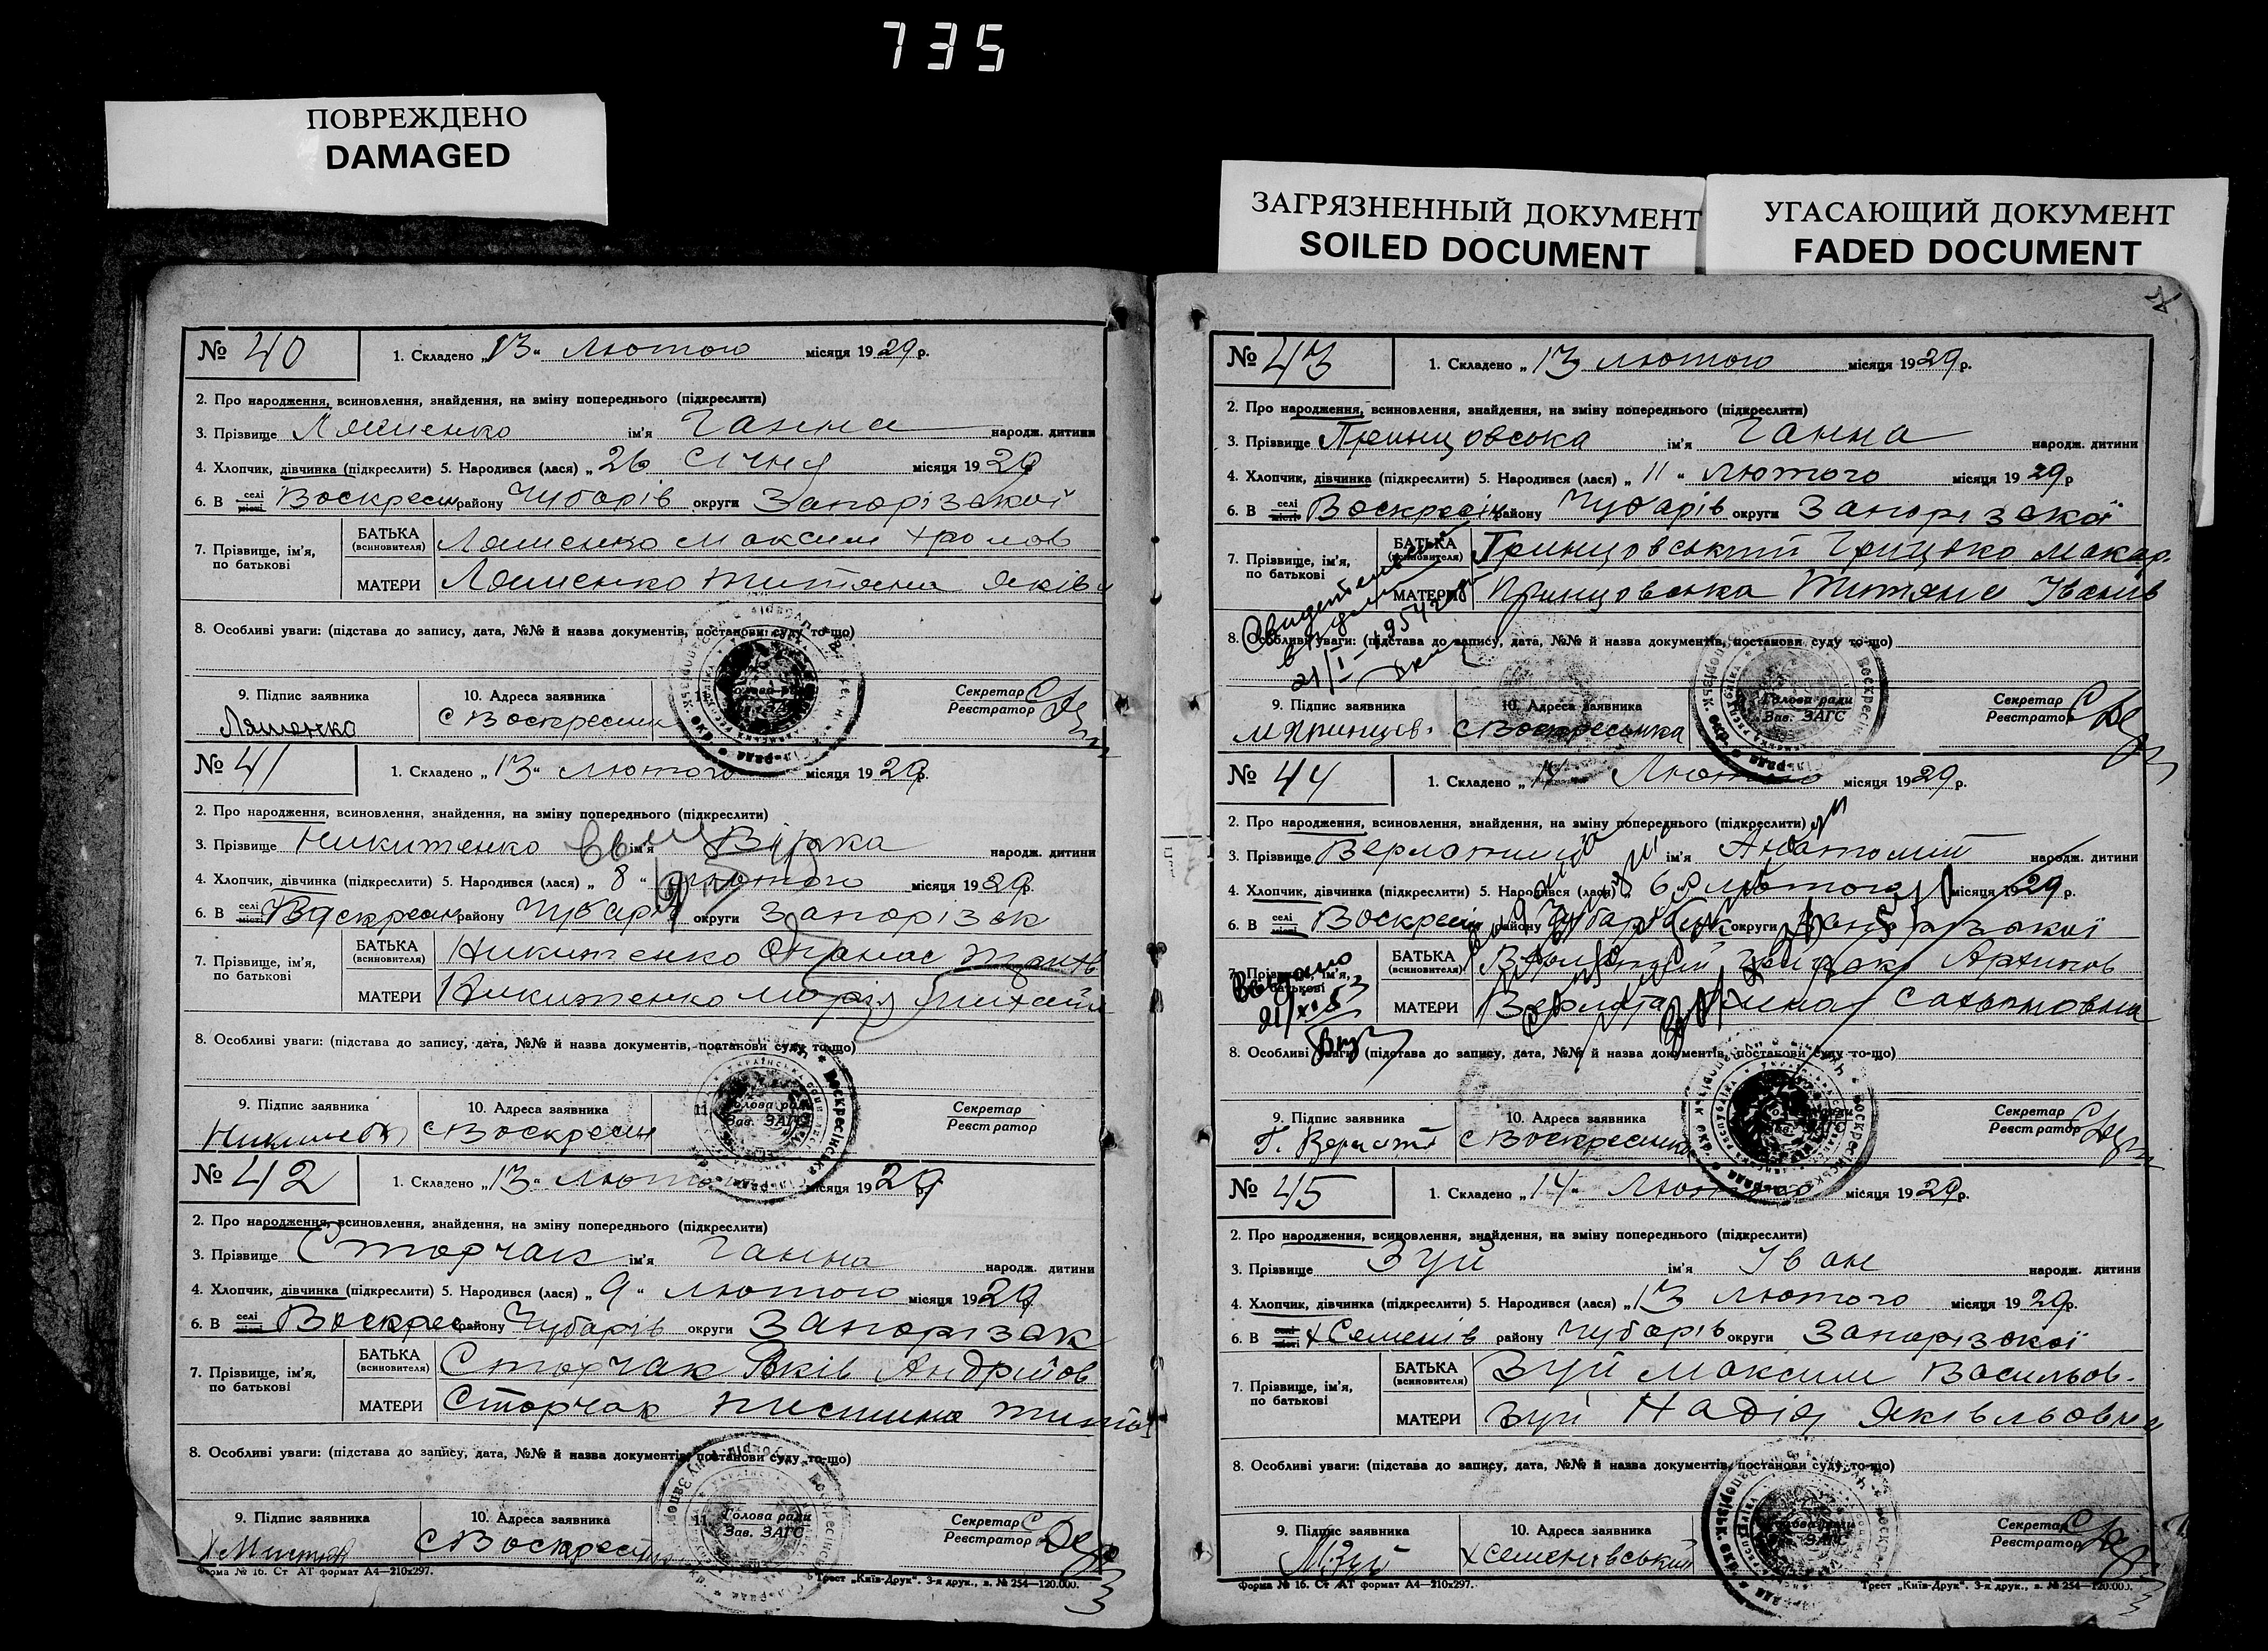 735
ПОВРЕЖДЕНО
DAMAGED
ЗАГРЯЗНЕННЫЙ ДОКУМЕНТ
SOILED DOCUMENT
УГАСАЮЩИЙ ДОКУМЕНТ
FADED DOCUMENT
№ 40 1. Складено „13“ Лютого місяця 1929 р.
2. Про народження, всиновлення, знайдення, на зміну попереднього (підкреслити)
3. Прізвище Ляшенко ім'я Ганна народж. дитини
4. Хлопчик, дівчинка (підкреслити) 5. Народився (лася) „26 січня місяця 1929
6. В селі місті Воскресін району Чубарів округи Запорізької
7. Прізвище, ім'я, по батькові
БАТЬКА (всиновителя) Ляшенко Максим Хролов
МАТЕРИ Ляшенко Титяна Яківл
8. Особливі уваги: (підстава до запису, дата, №№ й назва документів, постанови суду то-що)
9. Підпис заявника 10. Адреса заявника 11. Секретар
Реєстратор
Ляшенко с Воскресінк
№ 41 1. Складено „13“ Лютого місяця 1929 р.
2. Про народження, всиновлення, знайдення, на зміну попереднього (підкреслити)
3. Прізвище Никитенко ім'я Вірка народж. дитини
4. Хлопчик, дівчинка (підкреслити) 5. Народився (лася) „8“ лютого місяця 1929 р.
6. В селі місті Воскресін району Чубарів округи Запорізок
7. Прізвище, ім'я, по батькові
БАТЬКА (всиновителя) Никитенко Опанас
МАТЕРИ Никитенко Марія Михайл
8. Особливі уваги: (підстава до запису, дата, №№ й назва документів, постанови суду то-що)
9. Підпис заявника 10. Адреса заявника 11. Голова ради Зав. ЗАГС Секретар
Реєстратор
с Воскресін
№ 42 1. Складено „13“ Лютого місяця 1929 р.
2. Про народження, всиновлення, знайдення, на зміну попереднього (підкреслити)
3. Прізвище Сторчак ім'я Ганна народж. дитини
4. Хлопчик, дівчинка (підкреслити) 5. Народився (лася) „9“ лютого місяця 1929 р.
6. В селі місті Воскрес району Чубарів округи Запорізок
7. Прізвище, ім'я, по батькові
БАТЬКА (всиновителя) Сторчак Яків Андрійов
МАТЕРИ Сторчак
8. Особливі уваги: (підстава до запису, дата, №№ й назва документів, постанови суду то-що)
9. Підпис заявника 10. Адреса заявника 11. Голова ради Зав. ЗАГС Секретар
Реєстратор
с Воскресін
Форма № 16. Ст АТ формат А4—210х297. Трест „Київ-Друк“. 3-я друк., з. № 254—120.000.
№ 43 1. Складено „13 лютого місяця 1929 р.
2. Про народження, всиновлення, знайдення, на зміну попереднього (підкреслити)
3. Прізвище Принцовська ім'я Ганна народж. дитини
4. Хлопчик, дівчинка (підкреслити) 5. Народився (лася) „11“ лютого місяця 1929 р
6. В селі місті Воскресін району Чубарів округи Запорізокої
7. Прізвище, ім'я, по батькові
БАТЬКА (всиновителя) Принцовський Грицько Макар.
МАТЕРИ Принцовська Титяна Іванів
8. Особливі уваги: (підстава до запису, дата, №№ й назва документів, постанови суду то-що)
9. Підпис заявника 10. Адреса заявника Голова ради Зав. ЗАГС Секретар
Реєстратор
М Принцов. с Воскресенка
№ 44 1. Складено „14 Лютого місяця 1929 р.
2. Про народження, всиновлення, знайдення, на зміну попереднього (підкреслити)
3. Прізвище ім'я Анатолий народж. дитини
4. Хлопчик, дівчинка (підкреслити) 5. Народився (лася) „6 лютого місяця 1929 р.
6. В селі місті Воскресін району округи
7. Прізвище, ім'я, по батькові
БАТЬКА (всиновителя) Архипов
МАТЕРИ
Выдано
8. Особливі уваги: (підстава до запису, дата, №№ й назва документів, постанови суду то-що)
9. Підпис заявника 10. Адреса заявника Секретар
Реєстратор
с Воскресінка
№ 45 1. Складено „14“ Лютого місяця 1929 р.
2. Про народження, всиновлення, знайдення, на зміну попереднього (підкреслити)
3. Прізвище Зуй ім'я Іван народж. дитини
4. Хлопчик, дівчинка (підкреслити) 5. Народився (лася) „13 лютого місяця 1929 р.
6. В селі місті х Семенів району Чубарів округи Запорізокої
7. Прізвище, ім'я, по батькові
БАТЬКА (всиновителя) Зуй Максим Васильов.
МАТЕРИ Зуй Надія Яківльовна
8. Особливі уваги: (підстава до запису, дата, №№ й назва документів, постанови суду то-що)
9. Підпис заявника 10. Адреса заявника Секретар
Реєстратор
М Зуй х Семенівський
Форма № 16. Ст АТ формат А4—210х297. Трест „Київ-Друк“. 3-я друк., з. № 254—120.000.